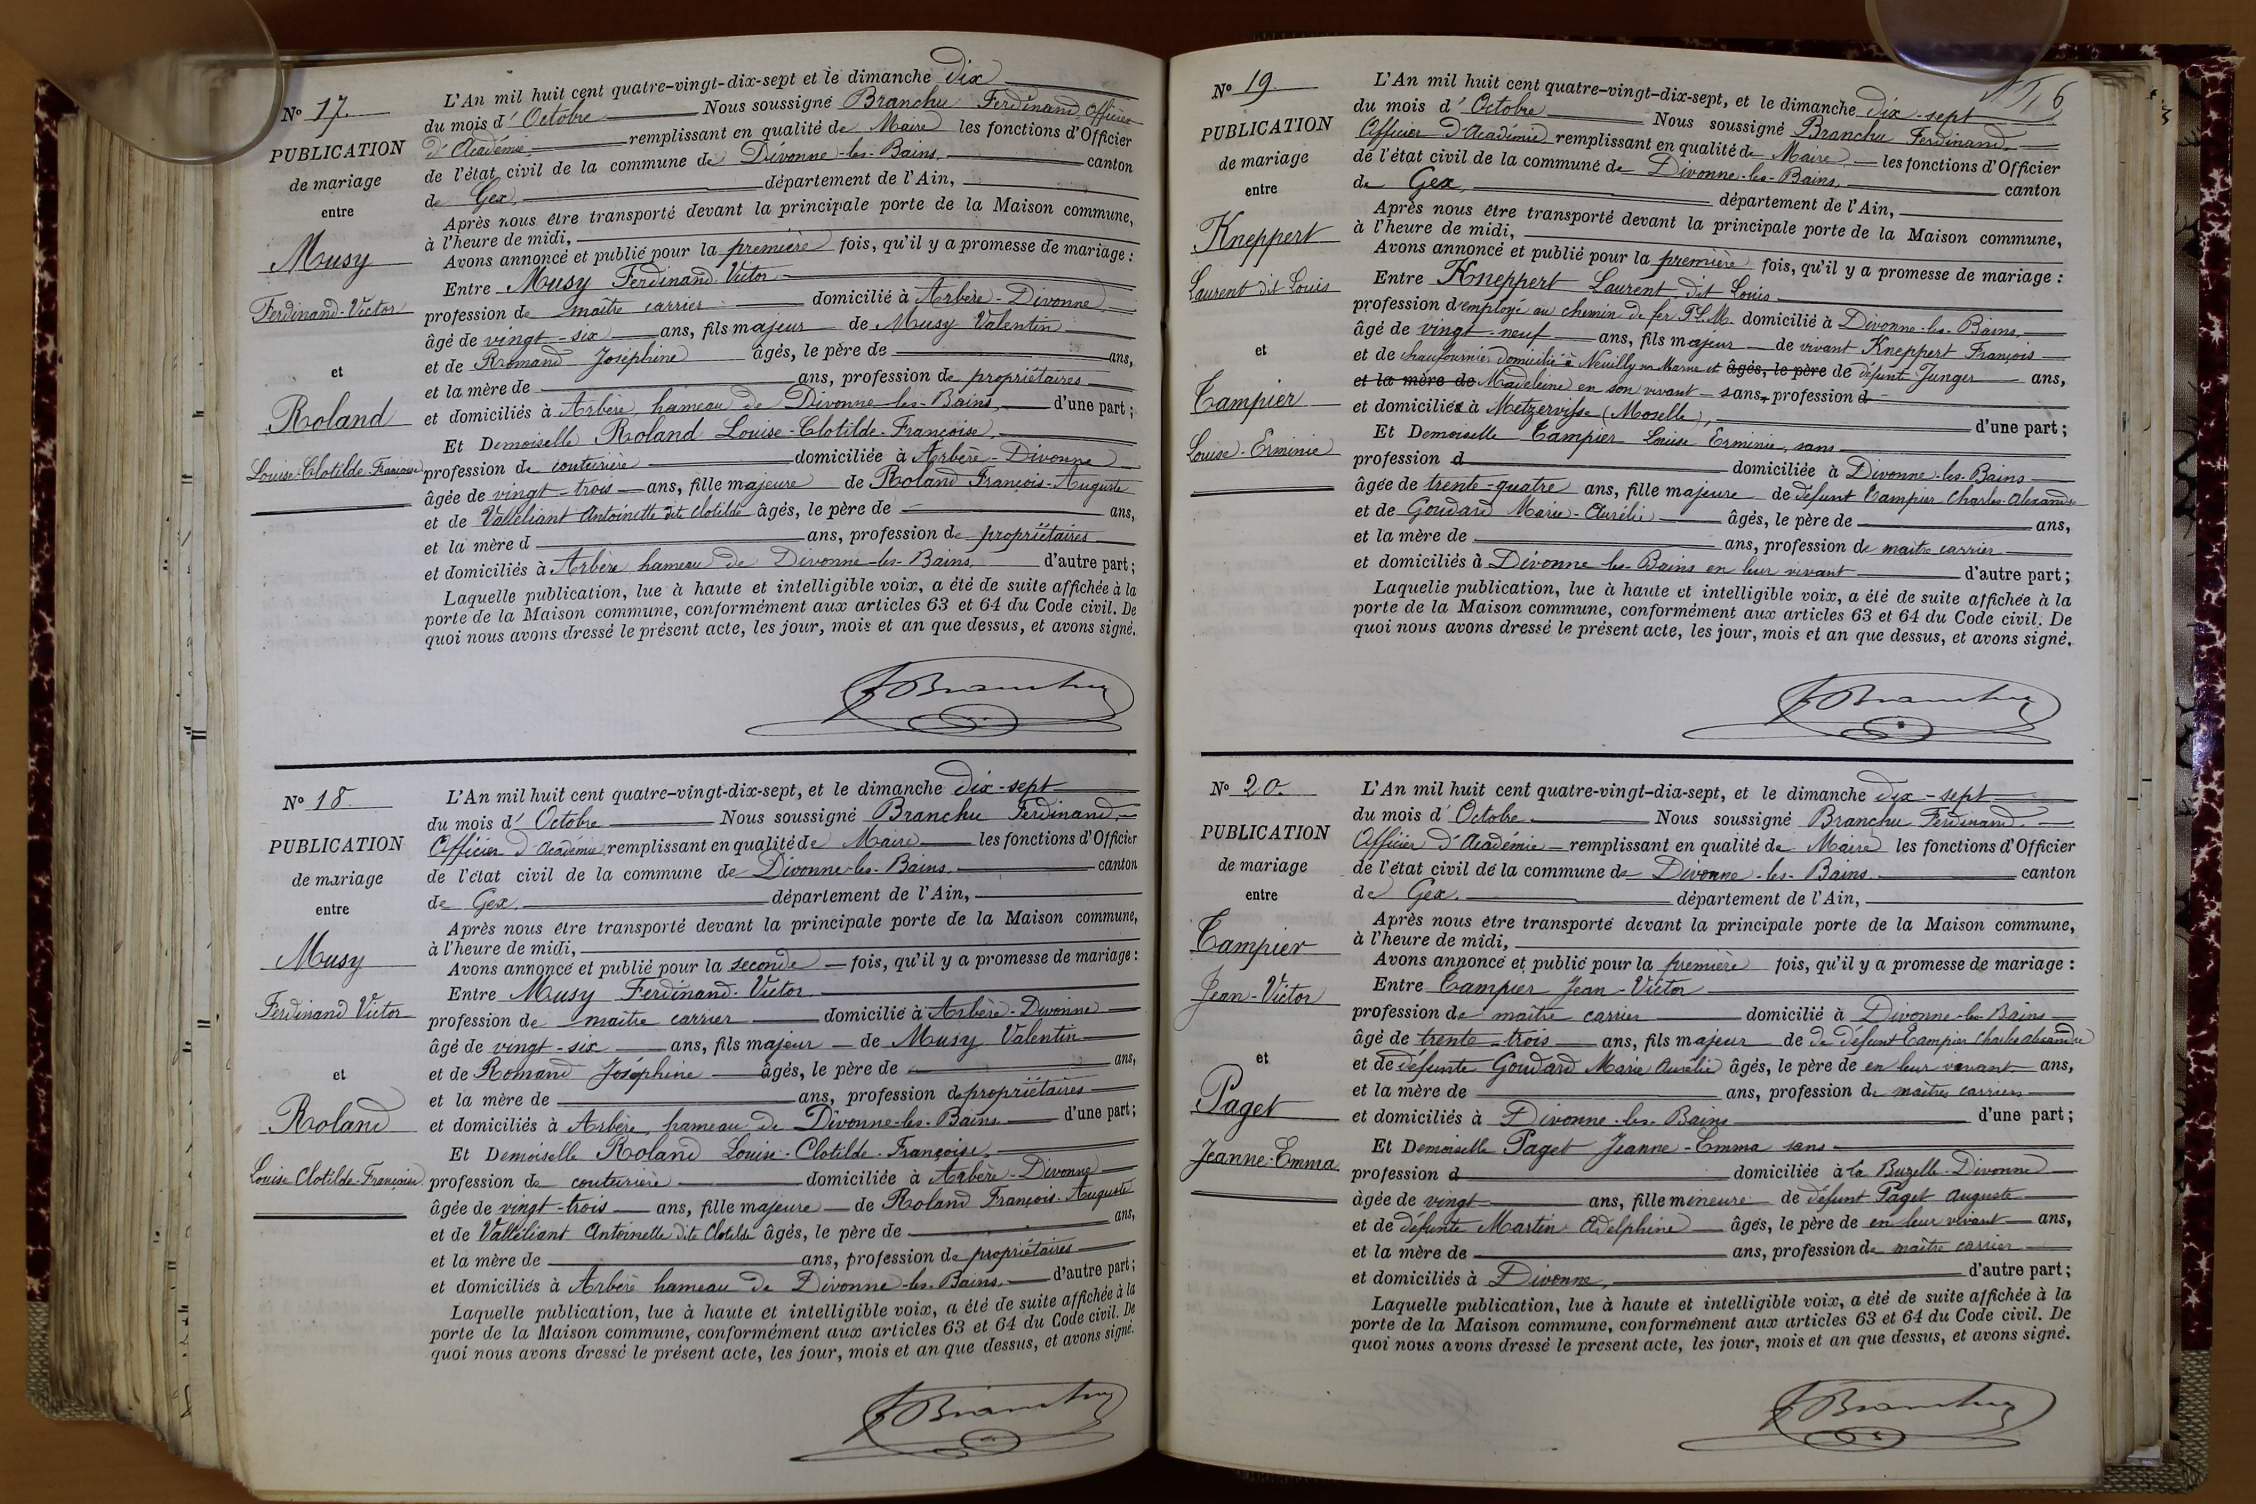 N° 17.
PUBLICATION
de mariage
entre
Musy
Ferdinand-Victor
et
Roland
Louise-Clotilde-Françoise
L'An mil huit cent quatre-vingt-dix-sept et le dimanche dix
du mois d'Octobre Nous soussigné Branchu Ferdinand Officier
d'Académie remplissant en qualité de Maire les fonctions d'Officier
de l'état civil de la commune de Divonne-les-Bains, canton
de Gex, département de l'Ain,
Après nous être transporté devant la principale porte de la Maison commune,
à l'heure de midi,
Avons annoncé et publié pour la première fois, qu'il y a promesse de mariage :
Entre Musy Ferdinand-Victor
profession de maître carrier domicilié à Arbère-Divonne
âgé de vingt-six ans, fils majeur de Musy Valentin
et de Romand Joséphine âgés, le père de ans,
et la mère de ans, profession de propriétaires
et domiciliés à Arbère, hameau de Divonne-les-Bains, d'une part ;
Et Demoiselle Roland Louise-Clotilde-Françoise,
profession de couturière domiciliée à Arbère-Divonne
âgée de vingt-trois ans, fille majeure de Roland François-Auguste
et de Valléliant Antoinette dite Clotilde âgés, le père de ans,
et la mère d ans, profession de propriétaires
et domiciliés à Arbère hameau de Divonne-les-Bains, d'autre part ;
Laquelle publication, lue à haute et intelligible voix, a été de suite affichée à la
porte de la Maison commune, conformément aux articles 63 et 64 du Code civil. De
quoi nous avons dressé le présent acte, les jour, mois et an que dessus, et avons signé.
F Branchu
N° 18
PUBLICATION
de mariage
entre
Musy
Ferdinand Victor
et
Roland
Louise Clotilde-Françoise
L'An mil huit cent quatre-vingt-dix-sept, et le dimanche dix-sept
du mois d'Octobre Nous soussigné Branchu Ferdinand,
Officier d'Académie remplissant en qualité de Maire les fonctions d'Officier
de l'état civil de la commune de Divonne-les-Bains, canton
de Gex, département de l'Ain,
Après nous être transporté devant la principale porte de la Maison commune,
à l'heure de midi,
Avons annoncé et publié pour la seconde fois, qu'il y a promesse de mariage :
Entre Musy Ferdinand-Victor
profession de maître carrier domicilié à Arbère-Divonne
âgé de vingt-six ans, fils majeur de Musy Valentin
et de Romand Joséphine âgés, le père de ans,
et la mère de ans, profession de propriétaires
et domiciliés à Arbère, hameau de Divonne-les-Bains d'une part ;
Et Demoiselle Roland Louise-Clotilde-Françoise,
profession de couturière domiciliée à Arbère-Divonne
âgée de vingt-trois ans, fille majeure de Roland François-Auguste
et de Valléliant Antoinette dite Clotilde âgés, le père de ans,
et la mère de ans, profession de propriétaires
et domiciliés à Arbère hameau de Divonne-les-Bains, d'autre part ;
Laquelle publication, lue à haute et intelligible voix, a été de suite affichée à la
porte de la Maison commune, conformément aux articles 63 et 64 du Code civil. De
quoi nous avons dressé le présent acte, les jour, mois et an que dessus, et avons signé.
F Branchu
N° 19.
PUBLICATION
de mariage
entre
Kneppert
Laurent dit Louis
et
Tampier
Louise-Erminie
L'An mil huit cent quatre-vingt-dix-sept, et le dimanche dix-sept
du mois d'Octobre Nous soussigné Branchu Ferdinand
Officier d'Académie remplissant en qualité de Maire les fonctions d'Officier
de l'état civil de la commune de Divonne-les-Bains, canton
de Gex, département de l'Ain,
Après nous être transporté devant la principale porte de la Maison commune,
à l'heure de midi,
Avons annoncé et publié pour la première fois, qu'il y a promesse de mariage :
Entre Kneppert Laurent dit Louis
profession d'employé au chemin de fer P.L.M. domicilié à Divonne-les-Bains
âgé de vingt-neuf ans, fils majeur de vivant Kneppert François
et de chaufournier domicilié à Neuilly sur Marne et âgés, le père de défunt Junger ans,
et la mère de Madeleine en son vivant sans profession d
et domiciliés à Metzervisse (Moselle), d'une part ;
Et Demoiselle Tampier Louise Erminie, sans
profession d domiciliée à Divonne-les-Bains
âgée de trente-quatre ans, fille majeure de défunt Tampier Charles-Alexandre
et de Goudard Marie-Aurélie âgés, le père de ans,
et la mère de ans, profession de maître carrier
et domiciliés à Divonne les-Bains en leur vivant d'autre part ;
Laquelle publication, lue à haute et intelligible voix, a été de suite affichée à la
porte de la Maison commune, conformément aux articles 63 et 64 du Code civil. De
quoi nous avons dressé le présent acte, les jour, mois et an que dessus, et avons signé.
F Branchu
N° 20.
PUBLICATION
de mariage
entre
Tampier
Jean-Victor
et
Paget
Jeanne-Emma
L'An mil huit cent quatre-vingt-dix-sept, et le dimanche dix-sept
du mois d'Octobre Nous soussigné Branchu Ferdinand.
Officier d'Académie remplissant en qualité de Maire les fonctions d'Officier
de l'état civil de la commune de Divonne-les-Bains canton
de Gex. département de l'Ain,
Après nous être transporté devant la principale porte de la Maison commune,
à l'heure de midi,
Avons annoncé et publié pour la première fois, qu'il y a promesse de mariage :
Entre Tampier Jean-Victor
profession de maître carrier domicilié à Divonne-les-Bains
âgé de trente-trois ans, fils majeur de de défunt Tampier Charles alexandre
et de défunte Goudard Marie Aurélie âgés, le père de en leur vivant ans,
et la mère de ans, profession de maîtres carriers
et domiciliés à Divonne-les-Bains d'une part ;
Et Demoiselle Paget Jeanne-Emma sans
profession d domiciliée à la Buzelle-Divonne
âgée de vingt ans, fille mineure de défunt Paget Auguste
et de défunte Martin Adelphine âgés, le père de en leur vivant ans,
et la mère de ans, profession de maître carrier
et domiciliés à Divonne, d'autre part ;
Laquelle publication, lue à haute et intelligible voix, a été de suite affichée à la
porte de la Maison commune, conformément aux articles 63 et 64 du Code civil. De
quoi nous avons dressé le présent acte, les jour, mois et an que dessus, et avons signé.
F Branchu